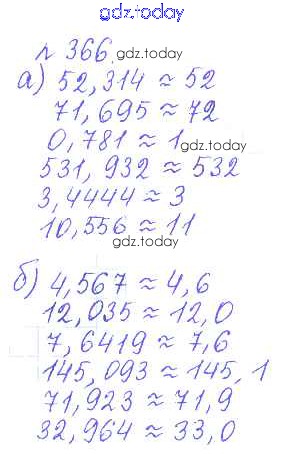 gdz.today
№ 366.
gdz.today
а) 52,314 ≈ 52
71,695 ≈ 72
0,781 ≈ 1
gdz.today
531,932 ≈ 532
3,4444 ≈ 3
10,556 ≈ 11
gdz.today
б) 4,567 ≈ 4,6
12,035 ≈ 12,0
7,6419 ≈ 7,6
145,093 ≈ 145,1
71,923 ≈ 71,9
32,964 ≈ 33,0
gdz.today